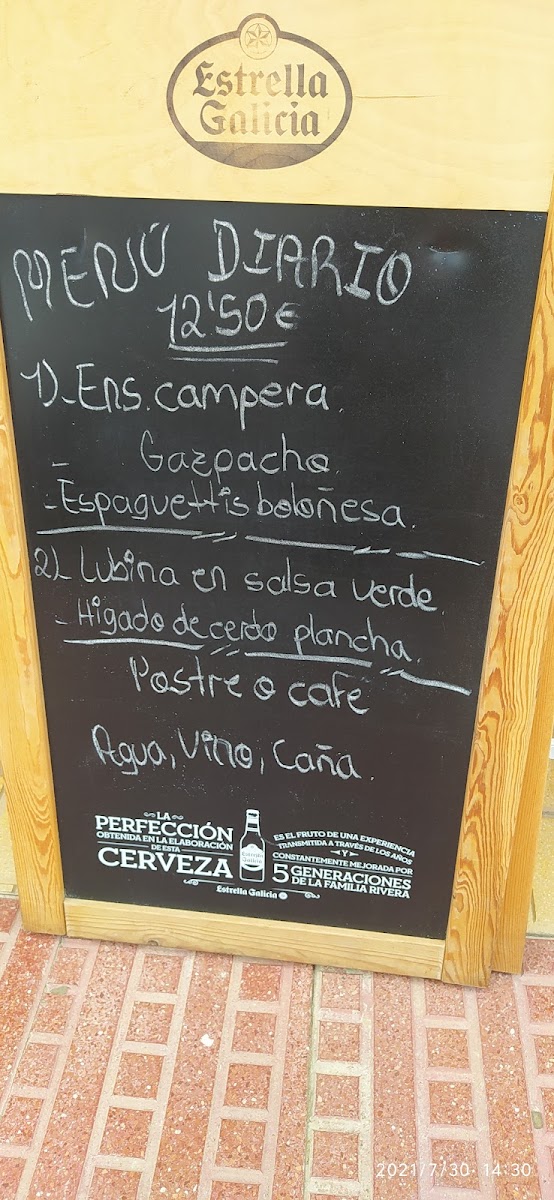 Estrella
Galicia
MENÚ DIARIO
12'50€
1)-Ens. campera.
- Gazpacho.
-Espaguettis boloñesa.
2)- Lubina en salsa verde.
- Higado de cerdo plancha.
Postre o café
Agua, Vino, Caña.
LA
PERFECCIÓN
OBTENIDA EN LA ELABORACIÓN
DE ESTA
CERVEZA
Estrella
Galicia
ES EL FRUTO DE UNA EXPERIENCIA
TRANSMITIDA A TRAVÉS DE LOS AÑOS
Y
CONSTANTEMENTE MEJORADA POR
5 GENERACIONES
DE LA FAMILIA RIVERA
Estrella Galicia
2021/7/30 14:30